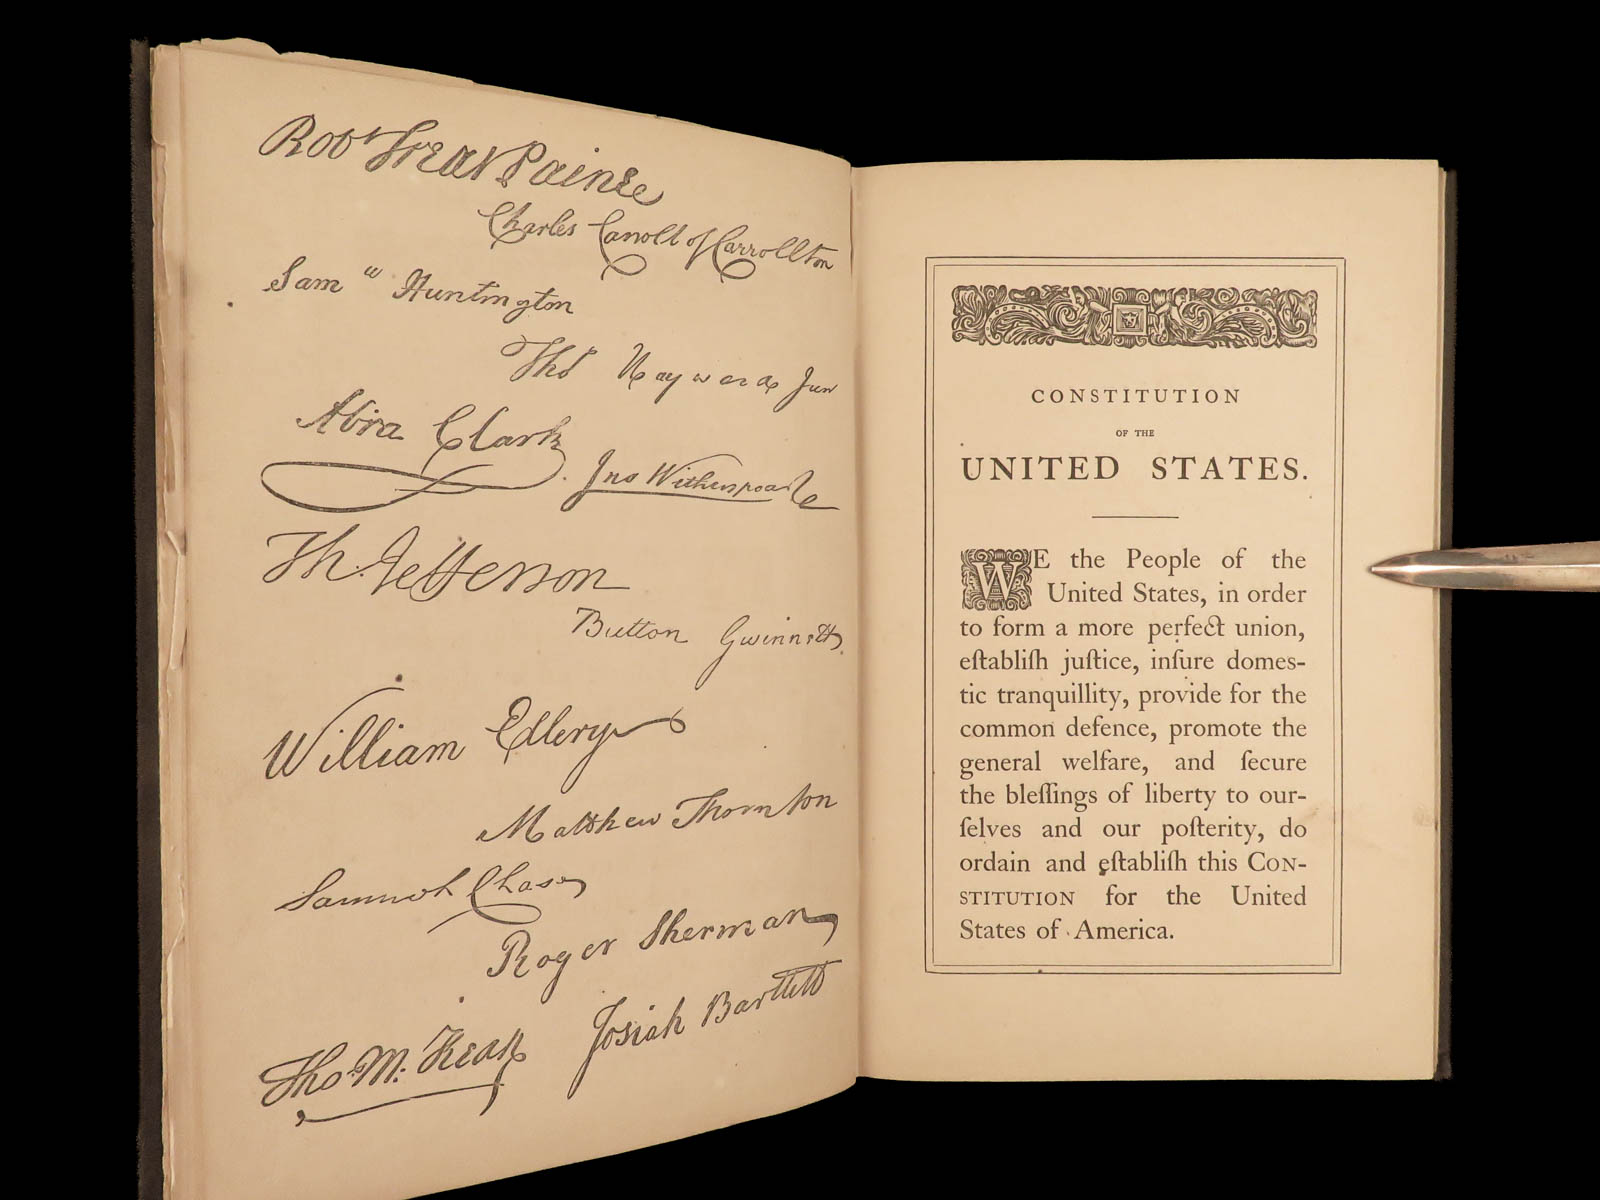 Robt Treat Paine
Charles Carroll of Carrollton
Saml Huntington
Thos Heyward Junr
Abra Clark
Jno Witherspoon
Th. Jefferson
Button Gwinnett
William Ellery
Matthew Thornton
Samuel Chase
Roger Sherman
Josiah Bartlett
Tho. M: Kean
CONSTITUTION
OF THE
UNITED STATES.
WE the People of the
United States, in order
to form a more perfect union,
eſtabliſh juſtice, inſure domes-
tic tranquillity, provide for the
common defence, promote the
general welfare, and ſecure
the bleſſings of liberty to our-
ſelves and our poſterity, do
ordain and eſtabliſh this CON-
STITUTION for the United
States of America.